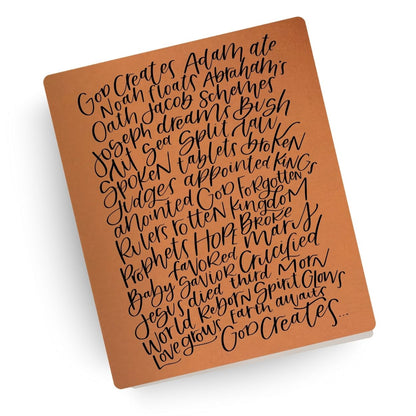 GOD CREATES ADAM ate
NOAH FLOATS ABRAHAM'S
OATH JACOB SCHEMES
JOSEPH DREAMS BUSH
LIT SEA SPLIT LAW
SPOKEN TABLETS BROKEN
JUDGES APPOINTED KINGS
ANOINTED GOD FORGOTTEN
RULERS ROTTEN KINGDOM
PROPHETS HOPE BROKE
FAVORED MARY
BABY SAVIOR CRUCIFIED
JESUS DIED THIRD MORN
WORLD REBORN SPIRIT GLOWS
LOVE GROWS EARTH AWAITS
GOD CREATES...